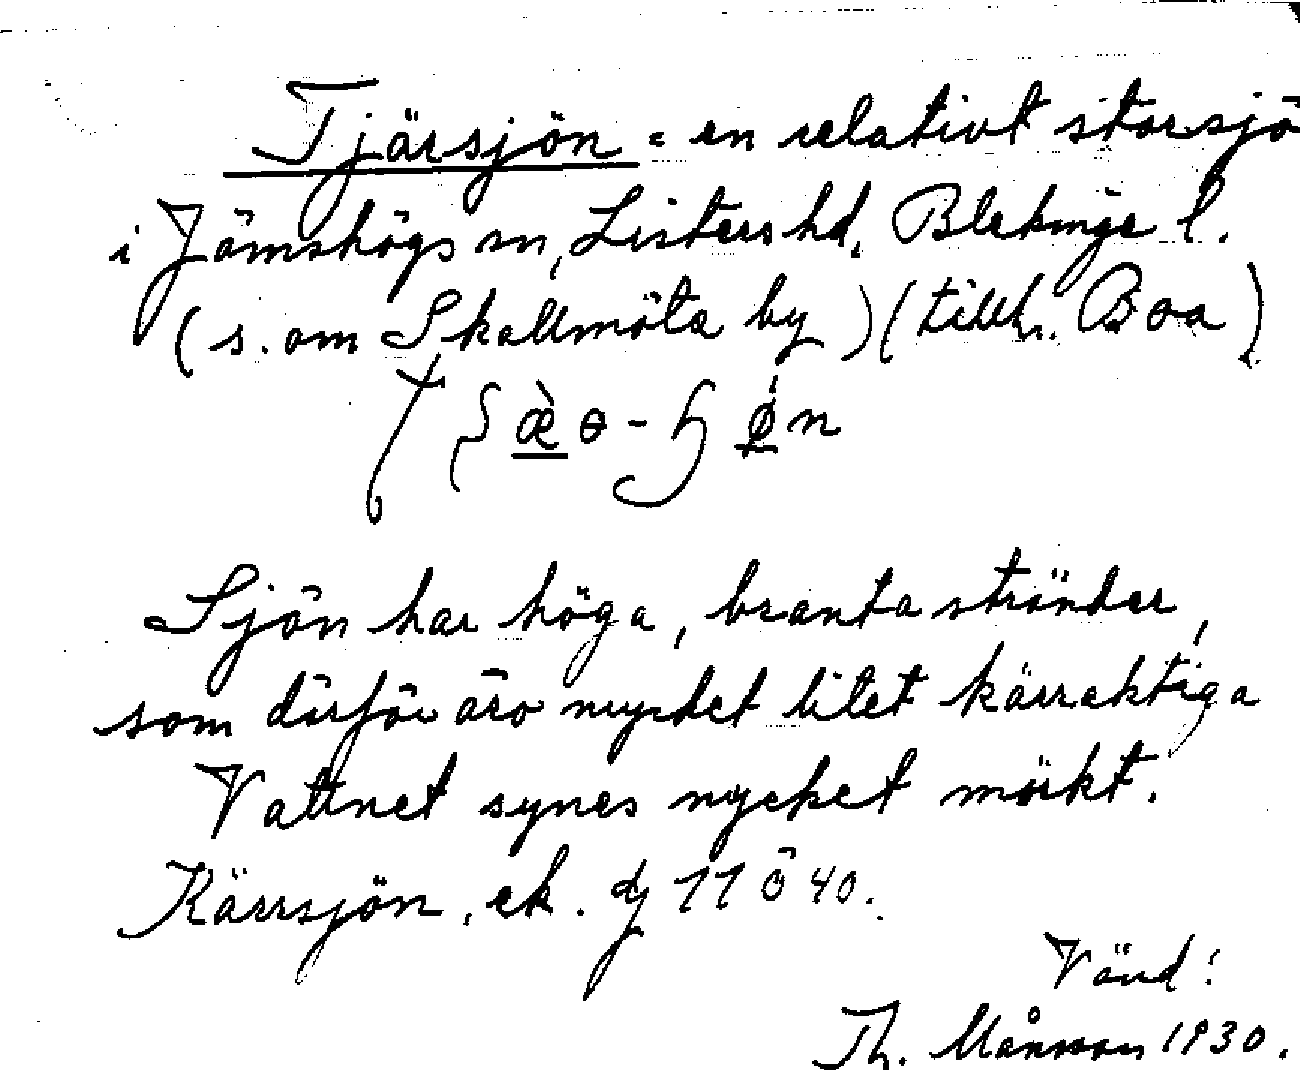 Tjärsjön = en relativt stor sjö
i Jämshögs sn, Listers hd, Blekinge l.
(s. om Skallmöta by) (tillh. Boa)
Sjön har höga, branta stränder,
som därför äro mycket litet kärraktiga
Vattnet synes mycket mörkt.
Kärrsjön, ek. bl 11 Ö 40.
Vänd!
Th. Månsson 1930.